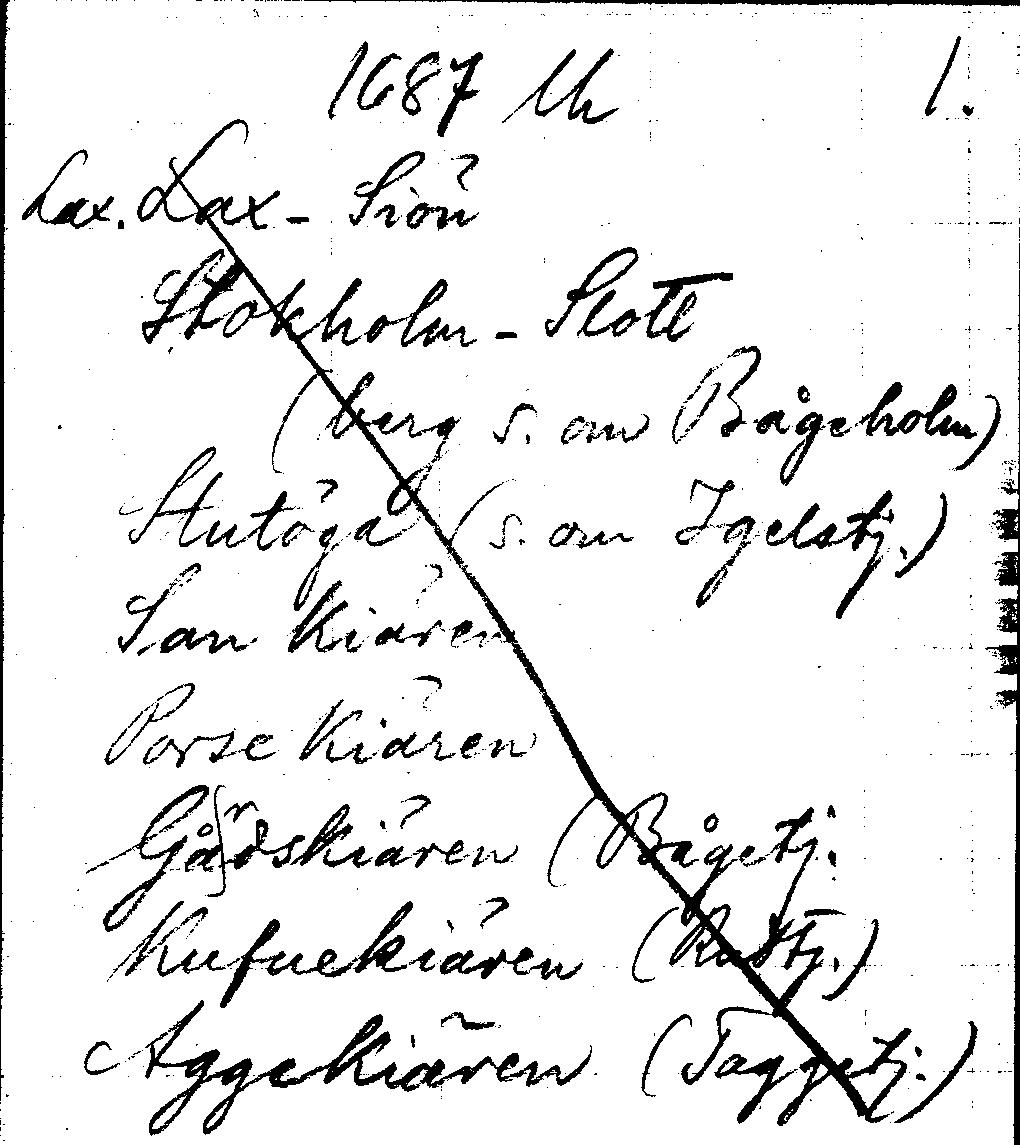 1687 Uh 1.
Lax. Lax - Siön
Stokholm - Slott
(berg s. om Bågeholm)
Stutöga (s. om Igelstj.)
San kiären
Porse kiären
Gårdskiären (Bågetj.
Kufuekiären (Råttj.)
Aggekiären (Taggetj.)